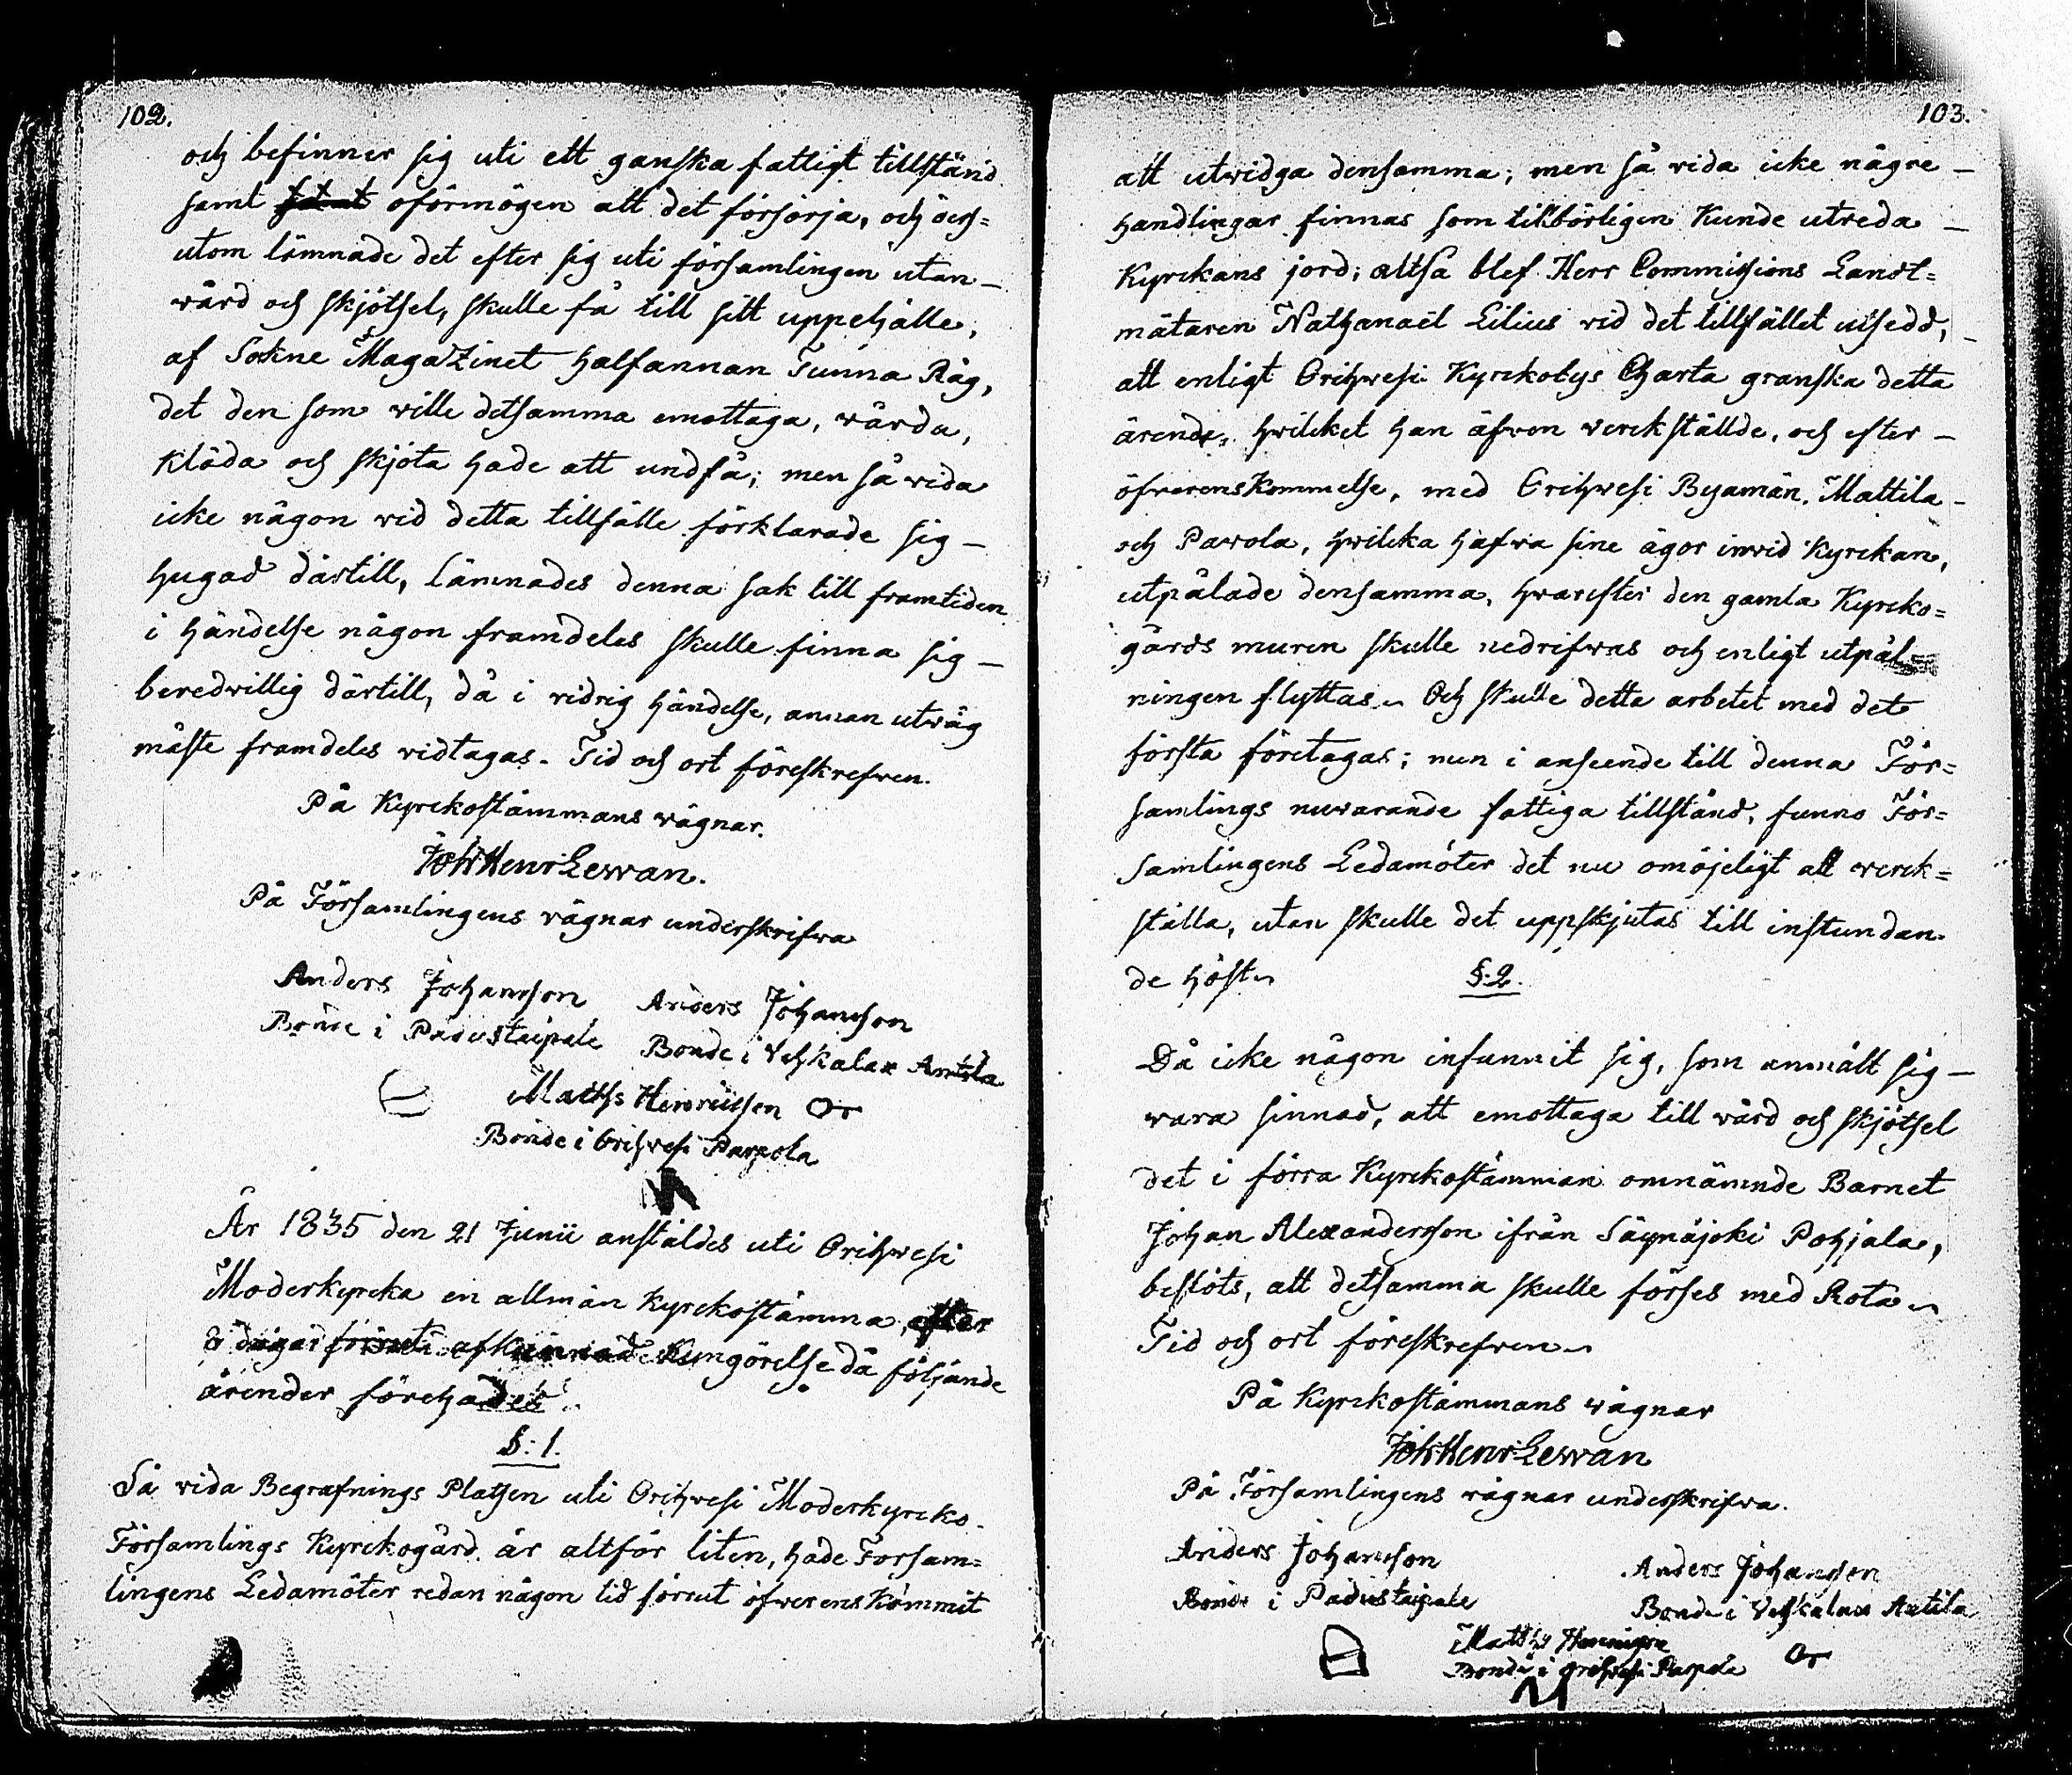 102.
och befinner sig uti ett ganska fattigt tillstånd
samt oförmögen att det försörja, och öfv=
utom lämnade det efter sig uti församlingen utan –
vård och skjötsel, skulle få till sitt uppehälle,
af Sokne Magazinet halfannan Tunna Råg,
det den som ville detsamma emottaga, vårda,
kläda och skjöta hade att undfå; men så vida
icke någon vid detta tillfälle förklarade sig –
hugad därtill, lämnades denna sak till framtiden
i händelse någon framdeles skulle finna sig –
beredvillig därtill, då i vidrig händelse, annan utväg
måste framdeles vidtagas. Tid och ort föreskrefven.
På Kyrckostämmans vägnar.
Joh Henr Lewan.
På Församlingens vägnar underskrifva
Anders Johansson Anders Johansson
Bonde i Padustaipale Bonde i Vehkalax Antila
Matths Henricsson Or
Bonde i Orihvesi Parpola
År 1835 den 21 Junii anstäldes uti Orihvesi
Moderkyrcka en allmän Kyrckostämma, efter
8 dagar förut afkunnad Kungörelse då följande
ärender förehades.
§: 1.
Så vida Begrafnings Platsen uti Orihvesi Moderkyrcko
Församlings Kyrckogård är altför liten, hade Forsam=
lingens Ledamöter redan någon tid förrut öfverenskommit
103.
att utvidga densamma; men så vida icke någre –
handlingar finnas som tillbörligen kunde utreda –
Kyrckans jord; altsa blef Herr Commissions Landt=
mätaren Nathanaël Lilius vid det tillfället utsedd, –
att enligt Orihvesi Kyrckobys Charta granska detta
ärende, hvilcket han äfven verckställde, och efter –
öfverenskommelse, med Orihvesi Byamän, Mattila –
och Pavola, hvilcka hafva sine ägor invid Kyrckan,
utpålade densamma, hvarefter den gamla Kyrcko=
gårds muren skulle nedrifvas och enligt utpål=
ningen flyttas. Och skulle detta arbetet med det
första företagas; men i anseende till denna För=
samlings nuvarande fattiga tillstånd, funno För=
samlingens Ledamöter det nu omöjeligt att verck=
ställa, utan skulle det uppskjutas till instundan
de höst.
§. 2.
Då icke någon infunnit sig, som anmält sig –
vara sinnad, att emottaga till vård och skjötsel
det i förra Kyrckostämman omnämnde Barnet
Johan Alexandersson ifrån Säynäjoki Pohjala,
beslöts, att detsamma skulle förses med Rota.
Tid och ort föreskrefven.
På Kyrckostämmans vägnar
Joh Henr Lewan
På Församlingens vägnar underskrifva.
Anders Johansson Anders Johansson
Bonde i Padustaipale Bonde i Vehkalax Antila
Matths
Bonde i Orihvesi Parpola Or